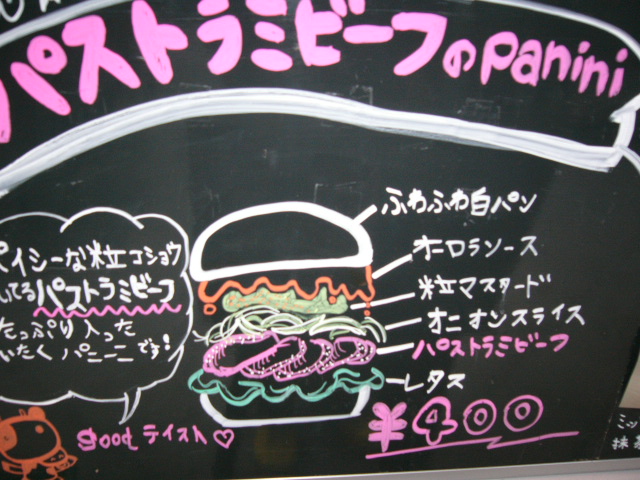 パストラミビーフのpanini
ふわふわ白パン
オーロラソース
粒マスタード
オニオンスライス
パストラミビーフ
レタス
¥400
パイシーな粒コショウ
してるパストラミビーフ
たっぷり入った
いたくパニーニです!
goodテイスト♡